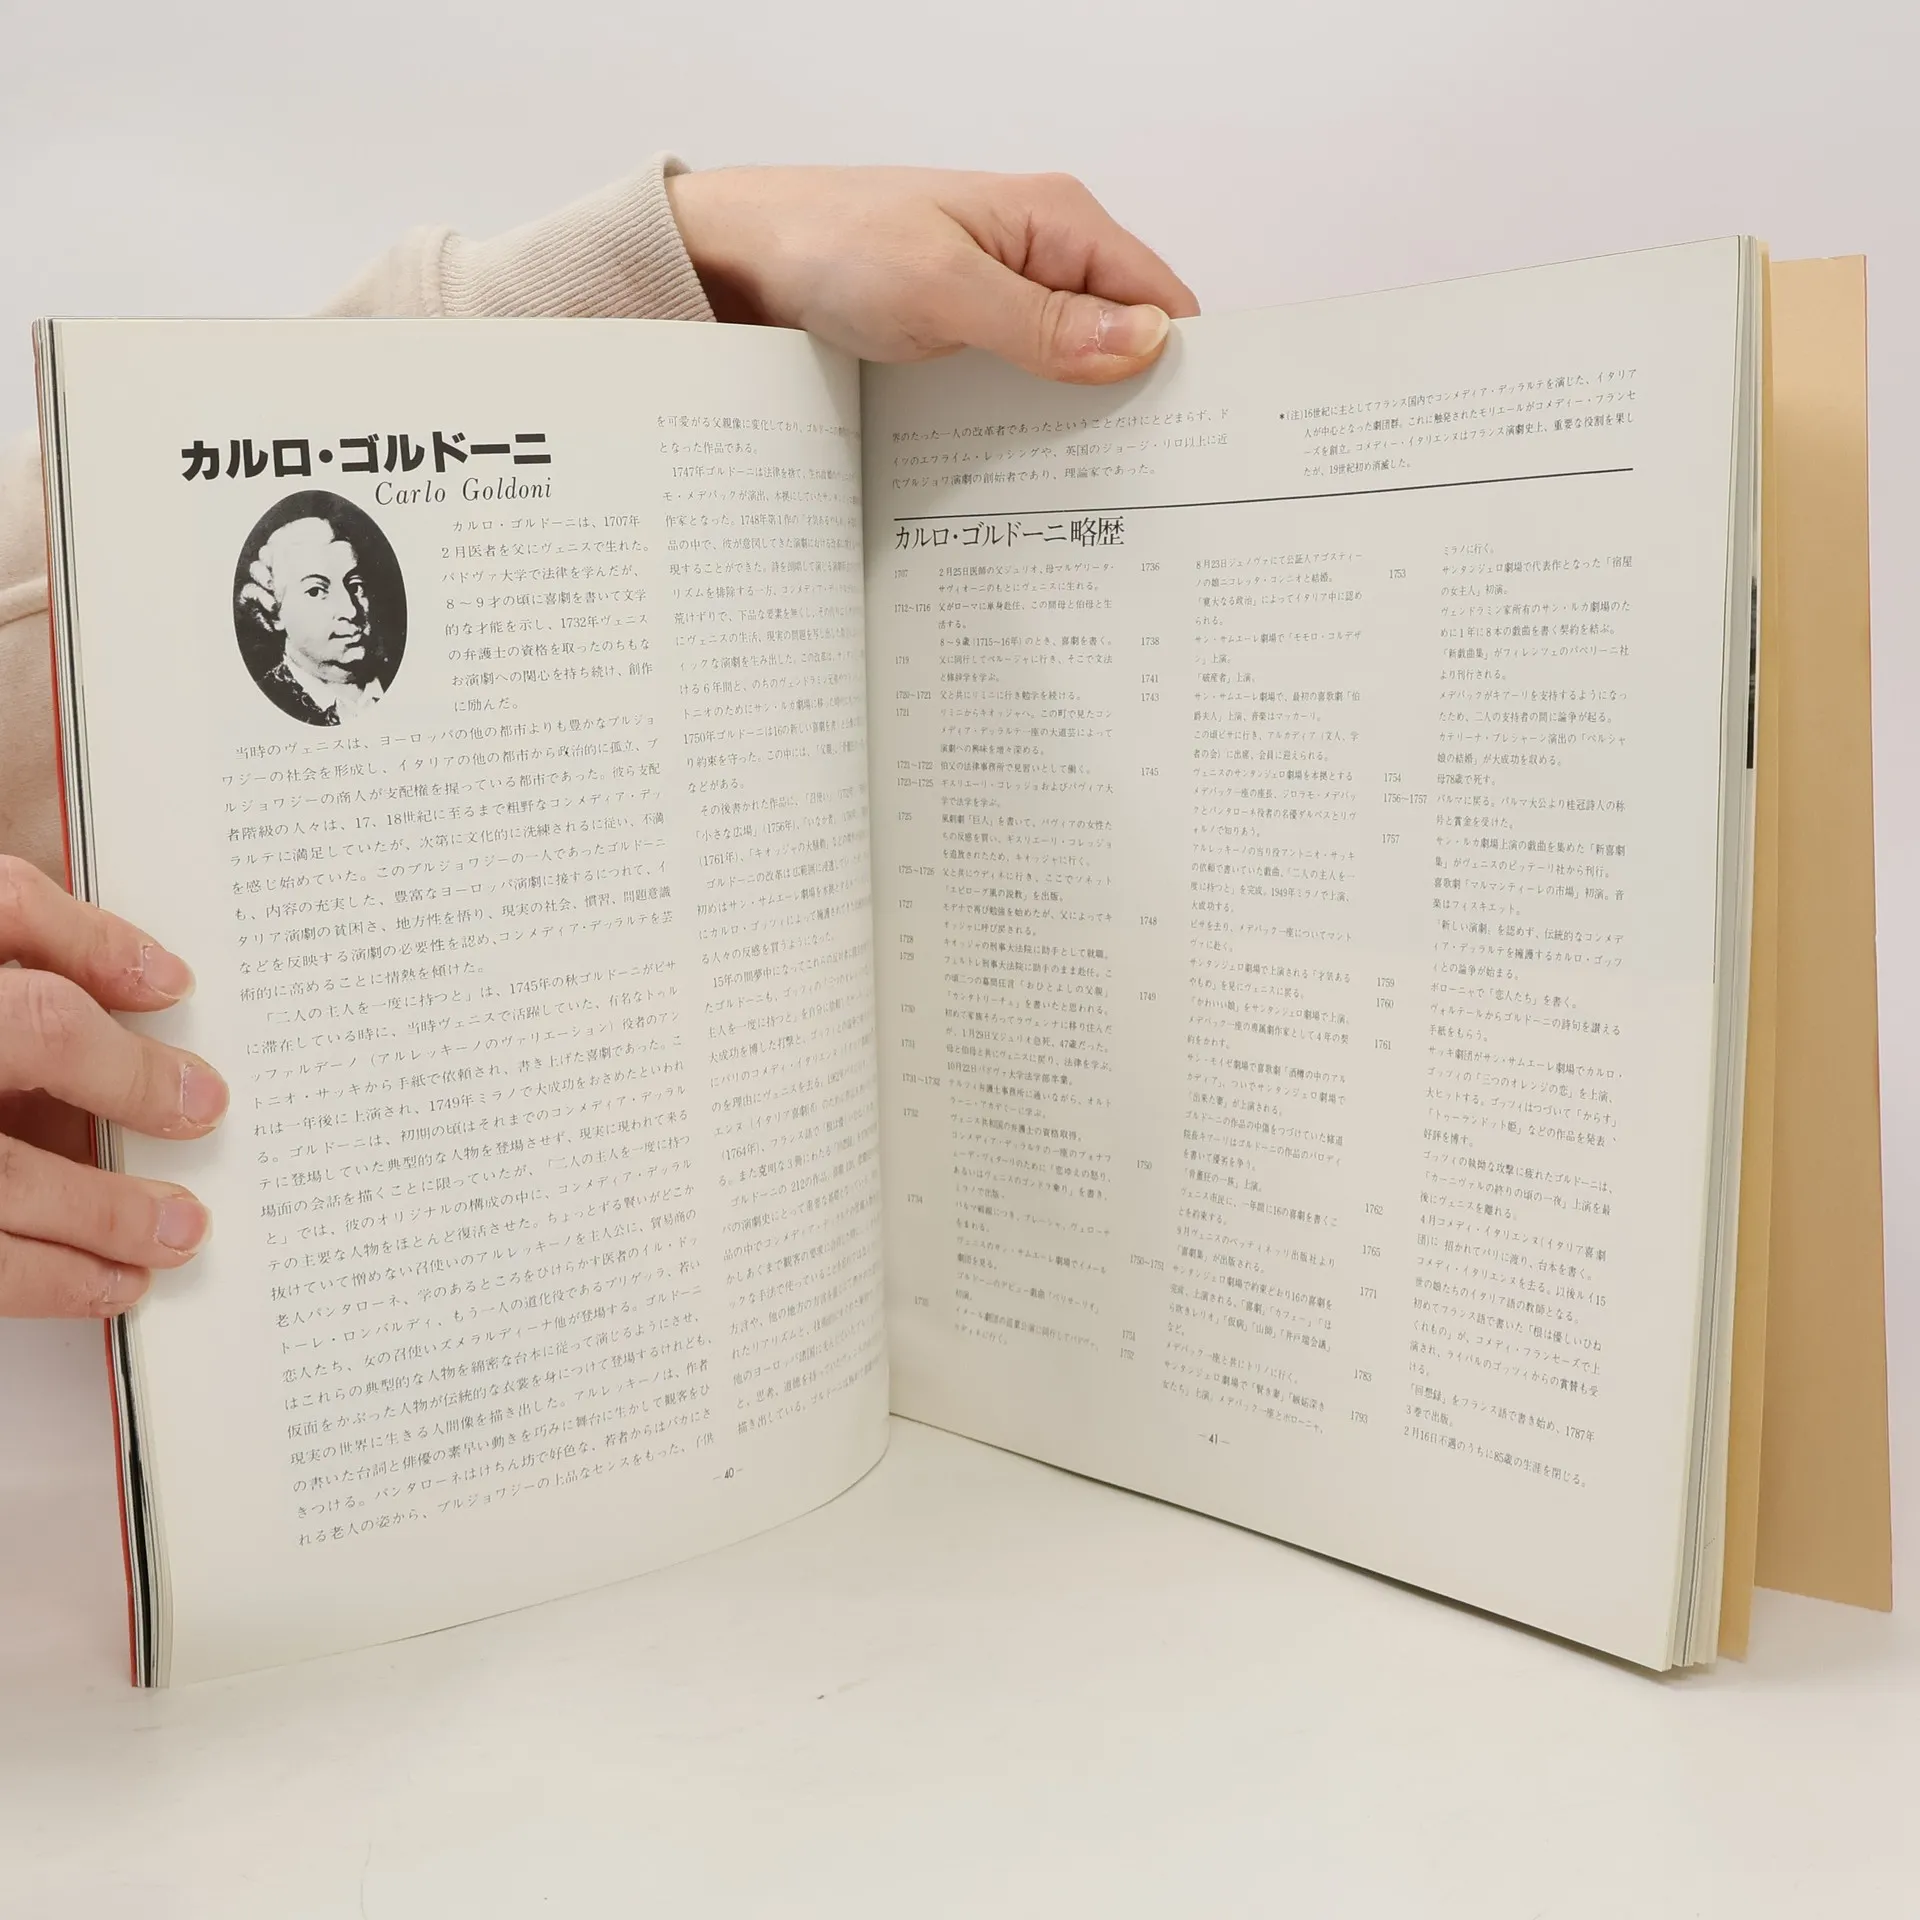 カルロ・ゴルドーニ
Carlo Goldoni
カルロ・ゴルドーニは、1707年
2月医者を父にヴェニスで生れた。
パドヴァ大学で法律を学んだが、
8～9才の頃に喜劇を書いて文学
的な才能を示し、1732年ヴェニス
の弁護士の資格を取ったのちもな
お演劇への関心を持ち続け、創作
に励んだ。
当時のヴェニスは、ヨーロッパの他の都市よりも豊かなブルジョ
ワジーの社会を形成し、イタリアの他の都市から政治的に孤立、ブ
ルジョワジーの商人が支配権を握っている都市であった。彼ら支配
者階級の人々は、17、18世紀に至るまで粗野なコンメディア・デッ
ラルテに満足していたが、次第に文化的に洗練されるに従い、不満
を感じ始めていた。このブルジョワジーの一人であったゴルドーニ
も、内容の充実した、豊富なヨーロッパ演劇に接するにつれて、イ
タリア演劇の貧困さ、地方性を悟り、現実の社会、慣習、問題意識
などを反映する演劇の必要性を認め、コンメディア・デッラルテを芸
術的に高めることに情熱を傾けた。
「二人の主人を一度に持つと」は、1745年の秋ゴルドーニがピサ
に滞在している時に、当時ヴェニスで活躍していた、有名なトゥル
ッファルデーノ（アルレッキーノのヴァリエーション）役者のアン
トニオ・サッキから手紙で依頼され、書き上げた喜劇であった。こ
れは一年後に上演され、1749年ミラノで大成功をおさめたといわれ
る。ゴルドーニは、初期の頃はそれまでのコンメディア・デッラル
テに登場していた典型的な人物を登場させず、現実に現われて来る
場面の会話を描くことに限っていたが、「二人の主人を一度に持つ
と」では、彼のオリジナルの構成の中に、コンメディア・デッラル
テの主要な人物をほとんど復活させた。ちょっとずる賢いがどこか
抜けていて憎めない召使いのアルレッキーノを主人公に、貿易商の
老人パンタローネ、学のあるところをひけらかす医者のイル・ドッ
トーレ・ロンバルディ、もう一人の道化役であるブリゲッラ、若い
恋人たち、女の召使いズメラルディーナ他が登場する。ゴルドーニ
はこれらの典型的な人物を綿密な台本に従って演じるようにさせ、
仮面をかぶった人物が伝統的な衣裳を身につけて登場するけれども、
現実の世界に生きる人間像を描き出した。アルレッキーノは、作者
の書いた台詞と俳優の素早い動きを巧みに舞台に生かして観客をひ
きつける。パンタローネはけちん坊で好色な、若者からはバカにさ
れる老人の姿から、ブルジョワジーの上品なセンスをもった、子供
を可愛がる父親像に変化しており、ゴルドーニの
となった作品である。
1747年ゴルドーニは法律を捨て、
モ・メデバックが演出、本拠にしていたサン
作家となった。1748年第1作の
品の中で、彼が意図してきた演劇における
現することができた。詩を朗唱して演じる
リズムを排除する一方、コンメディア・デッラ
荒けずりで、下品な要素を無くし、その
にヴェニスの生活、現実の問題を写し出した
ィックな演劇を生み出した。この改革は、
ける6年間と、のちのヴェンドラミン
トニオのためにサン・ルカ劇場に移った
1750年ゴルドーニは16の新しい喜劇を
り約束を守った。この中には、
などがある。
その後書かれた作品に、
「小さな広場」（1756年）、「いなか者」
（1761年）、「キオッジャの大騒動」
ゴルドーニの改革は広範囲に浸透して
初めはサン・サムエーレ劇場を本拠とする
にカルロ・ゴッツィによって擁護された
る人々の反感を買うようになった。
15年の間夢中になって
たゴルドーニも、ゴッツィの
主人を一度に持つと」を自分に
大成功を博した打撃と、ゴッツィ
にパリのコメディ・イタリエンヌ
のを理由にヴェニスを去る。
エンヌ（イタリア喜劇
（1764年）、フランス語で
る。また克明な3冊にわたる
ゴルドーニの212の作品
パの演劇史にとって重要な
品の中でコンメディア・デッラルテの
かしあくまで観客の
ックな手法で使っている
方言や、他の地方の方法を
れたリアリズムと、
他のヨーロッパ諸国に
と、思考、道徳を持っていた
描き出している。ゴルドーニは
－40－
界のたった一人の改革者であったということだけにとどまらず、ド
イツのエフライム・レッシングや、英国のジョージ・リロ以上に近
代ブルジョワ演劇の創始者であり、理論家であった。
＊（注）16世紀に主としてフランス国内でコンメディア・デッラルテを演じた、イタリア
人が中心となった劇団群。これに触発されたモリエールがコメディー・フランセ
ーズを創立。コメディー・イタリエンヌはフランス演劇史上、重要な役割を果し
たが、19世紀初め消滅した。
カルロ・ゴルドーニ略歴
1707 2月25日医師の父ジュリオ、母マルゲリータ・
サヴィオーニのもとにヴェニスに生れる。
1712～1716 父がローマに単身赴任、この間母と伯母と生
活する。
8～9歳（1715～16年）のとき、喜劇を書く。
1719 父に同行してペルージャに行き、そこで文法
と修辞学を学ぶ。
1720～1721 父と共にリミニに行き勉学を続ける。
1721 リミニからキオッジャへ。この町で見たコン
メディア・デッラルテ一座の大道芸によって
演劇への興味を増々深める。
1721～1722 伯父の法律事務所で見習いとして働く。
1723～1725 ギスリエーリ・コレッジョおよびパヴィア大
学で法学を学ぶ。
1725 風刺劇「巨人」を書いて、パヴィアの女性た
ちの反感を買い、ギスリエーリ・コレッジョ
を追放されたため、キオッジャに行く。
1725～1726 父と共にウディネに行き、ここでソネット
「エピローグ風の説教」を出版。
1727 モデナで再び勉強を始めたが、父によってキ
オッジャに呼び戻される。
1728 キオッジャの刑事大法院に助手として就職。
1729 フェルトレ刑事大法院に助手のまま赴任。こ
の頃二つの幕間狂言「おひとよしの父親」
「カンタトリーチェ」を書いたと思われる。
1730 初めて家族そろってラヴェンナに移り住んだ
が、1月29日父ジュリオ急死。47歳だった。
1731 母と伯母と共にヴェニスに戻り、法律を学ぶ。
10月22日パドヴァ大学法学部卒業。
1731～1732 テルフィ弁護士事務所に通いながら、オルト
ラーニ・アカデミーに学ぶ。
1732 ヴェニス共和国の弁護士の資格取得。
コンメディア・デッラルテの一座の
のために「恋ゆえの怒り、
あるいはヴェニスのゴンドラ乗り」を書き、
ミラノで出版。
1734
ヴェニスのサン・サムエーレ劇場でイメール
劇団を見る。
ゴルドーニのデビュー戯曲「ベリサーリオ」
初演。
1735 イメール劇団の巡業公演に同行してパドヴァ、
ウディネに行く。
1736 8月23日ジェノヴァにて公証人アゴスティー
ノの娘ニコレッタ・コンニオと結婚。
「寛大なる政治」によってイタリア中に認め
られる。
1738 サン・サムエーレ劇場で「モモロ・コルデザ
ン」上演。
1741 「破産者」上演。
1743 サン・サムエーレ劇場で、最初の喜歌劇「伯
爵夫人」上演、音楽はマッカーリ。
この頃ピサに行き、アルカディア（文人、学
者の会）に出席、会員に迎えられる。
1745 ヴェニスのサンタンジェロ劇場を本拠とする
メデバック一座の座長、ジロラモ・メデバッ
クとパンタローネ役者の名優ダルベスとリヴ
ォルノで知りあう。
アルレッキーノの当り役アントニオ・サッキ
の依頼で書いていた戯曲、「二人の主人を一
度に持つと」を完成。1949年ミラノで上演、
大成功する。
1748 ピサを去り、メデバック一座についてマント
ヴァに赴く。
サンタンジェロ劇場で上演される「才気ある
やもめ」を見にヴェニスに戻る。
1749 「かわいい娘」をサンタンジェロ劇場で上演。
メデバック一座の専属劇作家として4年の契
約をかわす。
サン・モイゼ劇場で喜歌劇「酒樽の中のアル
カディア」、ついでサンタンジェロ劇場で
「出来た妻」が上演される。
ゴルドーニの作品の中傷をつづけていた修道
院長キアーリはゴルドーニの作品のパロディ
を書いて優劣を争う。
1750 「骨董狂の一族」上演。
ヴェニス市民に、一年間に16の喜劇を書くこ
とを約束する。
9月ヴェニスのベッティネッリ出版社より
「喜劇集」が出版される。
1750～1751 サンタンジェロ劇場で約束どおり16の喜劇を
完成、上演される。「喜劇」「カフェー」「ほ
ら吹きレリオ」「仮病」「山師」「井戸端会議」
など。
1751 メデバック一座と共にトリノに行く。
1752 サンタンジェロ劇場で「賢き妻」「嫉妬深き
女たち」上演。メデバック一座とボローニャ、
ミラノに行く。
1753 サンタンジェロ劇場で代表作となった「宿屋
の女主人」初演。
ヴェンドラミン家所有のサン・ルカ劇場のた
めに1年に8本の戯曲を書く契約を結ぶ。
「新戯曲集」がフィレンツェのパペリーニ社
より刊行される。
メデバックがキアーリを支持するようになっ
たため、二人の支持者の間に論争が起る。
カテリーナ・ブレシャーン演出の「ペルシャ
娘の結婚」が大成功を収める。
1754 母78歳で死す。
1756～1757 パルマに戻る。パルマ大公より桂冠詩人の称
号と賞金を受けた。
1757 サン・ルカ劇場上演の戯曲を集めた「新喜劇
集」がヴェニスのピッテーリ社から刊行。
喜歌劇「マルマンティーレの市場」初演。音
楽はフィスキエット。
「新しい演劇」を認めず、伝統的なコンメデ
ィア・デッラルテを擁護するカルロ・ゴッツ
ィとの論争が始まる。
1759 ボローニャで「恋人たち」を書く。
1760 ヴォルテールからゴルドーニの詩句を讃える
手紙をもらう。
1761 サッキ劇団がサン・サムエーレ劇場でカルロ・
ゴッツィの「三つのオレンジの恋」を上演、
大ヒットする。ゴッツィはつづいて「からす」
「トゥーランドット姫」などの作品を発表、
好評を博す。
ゴッツィの執拗な攻撃に疲れたゴルドーニは、
「カーニヴァルの終りの頃の一夜」上演を最
後にヴェニスを離れる。
1762 4月コメディ・イタリエンヌ（イタリア喜劇
団）に招かれてパリに渡り、台本を書く。
1765 コメディ・イタリエンヌを去る。以後ルイ15
世の娘たちのイタリア語の教師となる。
1771 初めてフランス語で書いた「根は優しいひね
くれもの」が、コメディ・フランセーズで上
演され、ライバルのゴッツィからの賞賛も受
ける。
1783 「回想録」をフランス語で書き始め、1787年
3巻で出版。
1793 2月16日不遇のうちに85歳の生涯を閉じる。
－41－